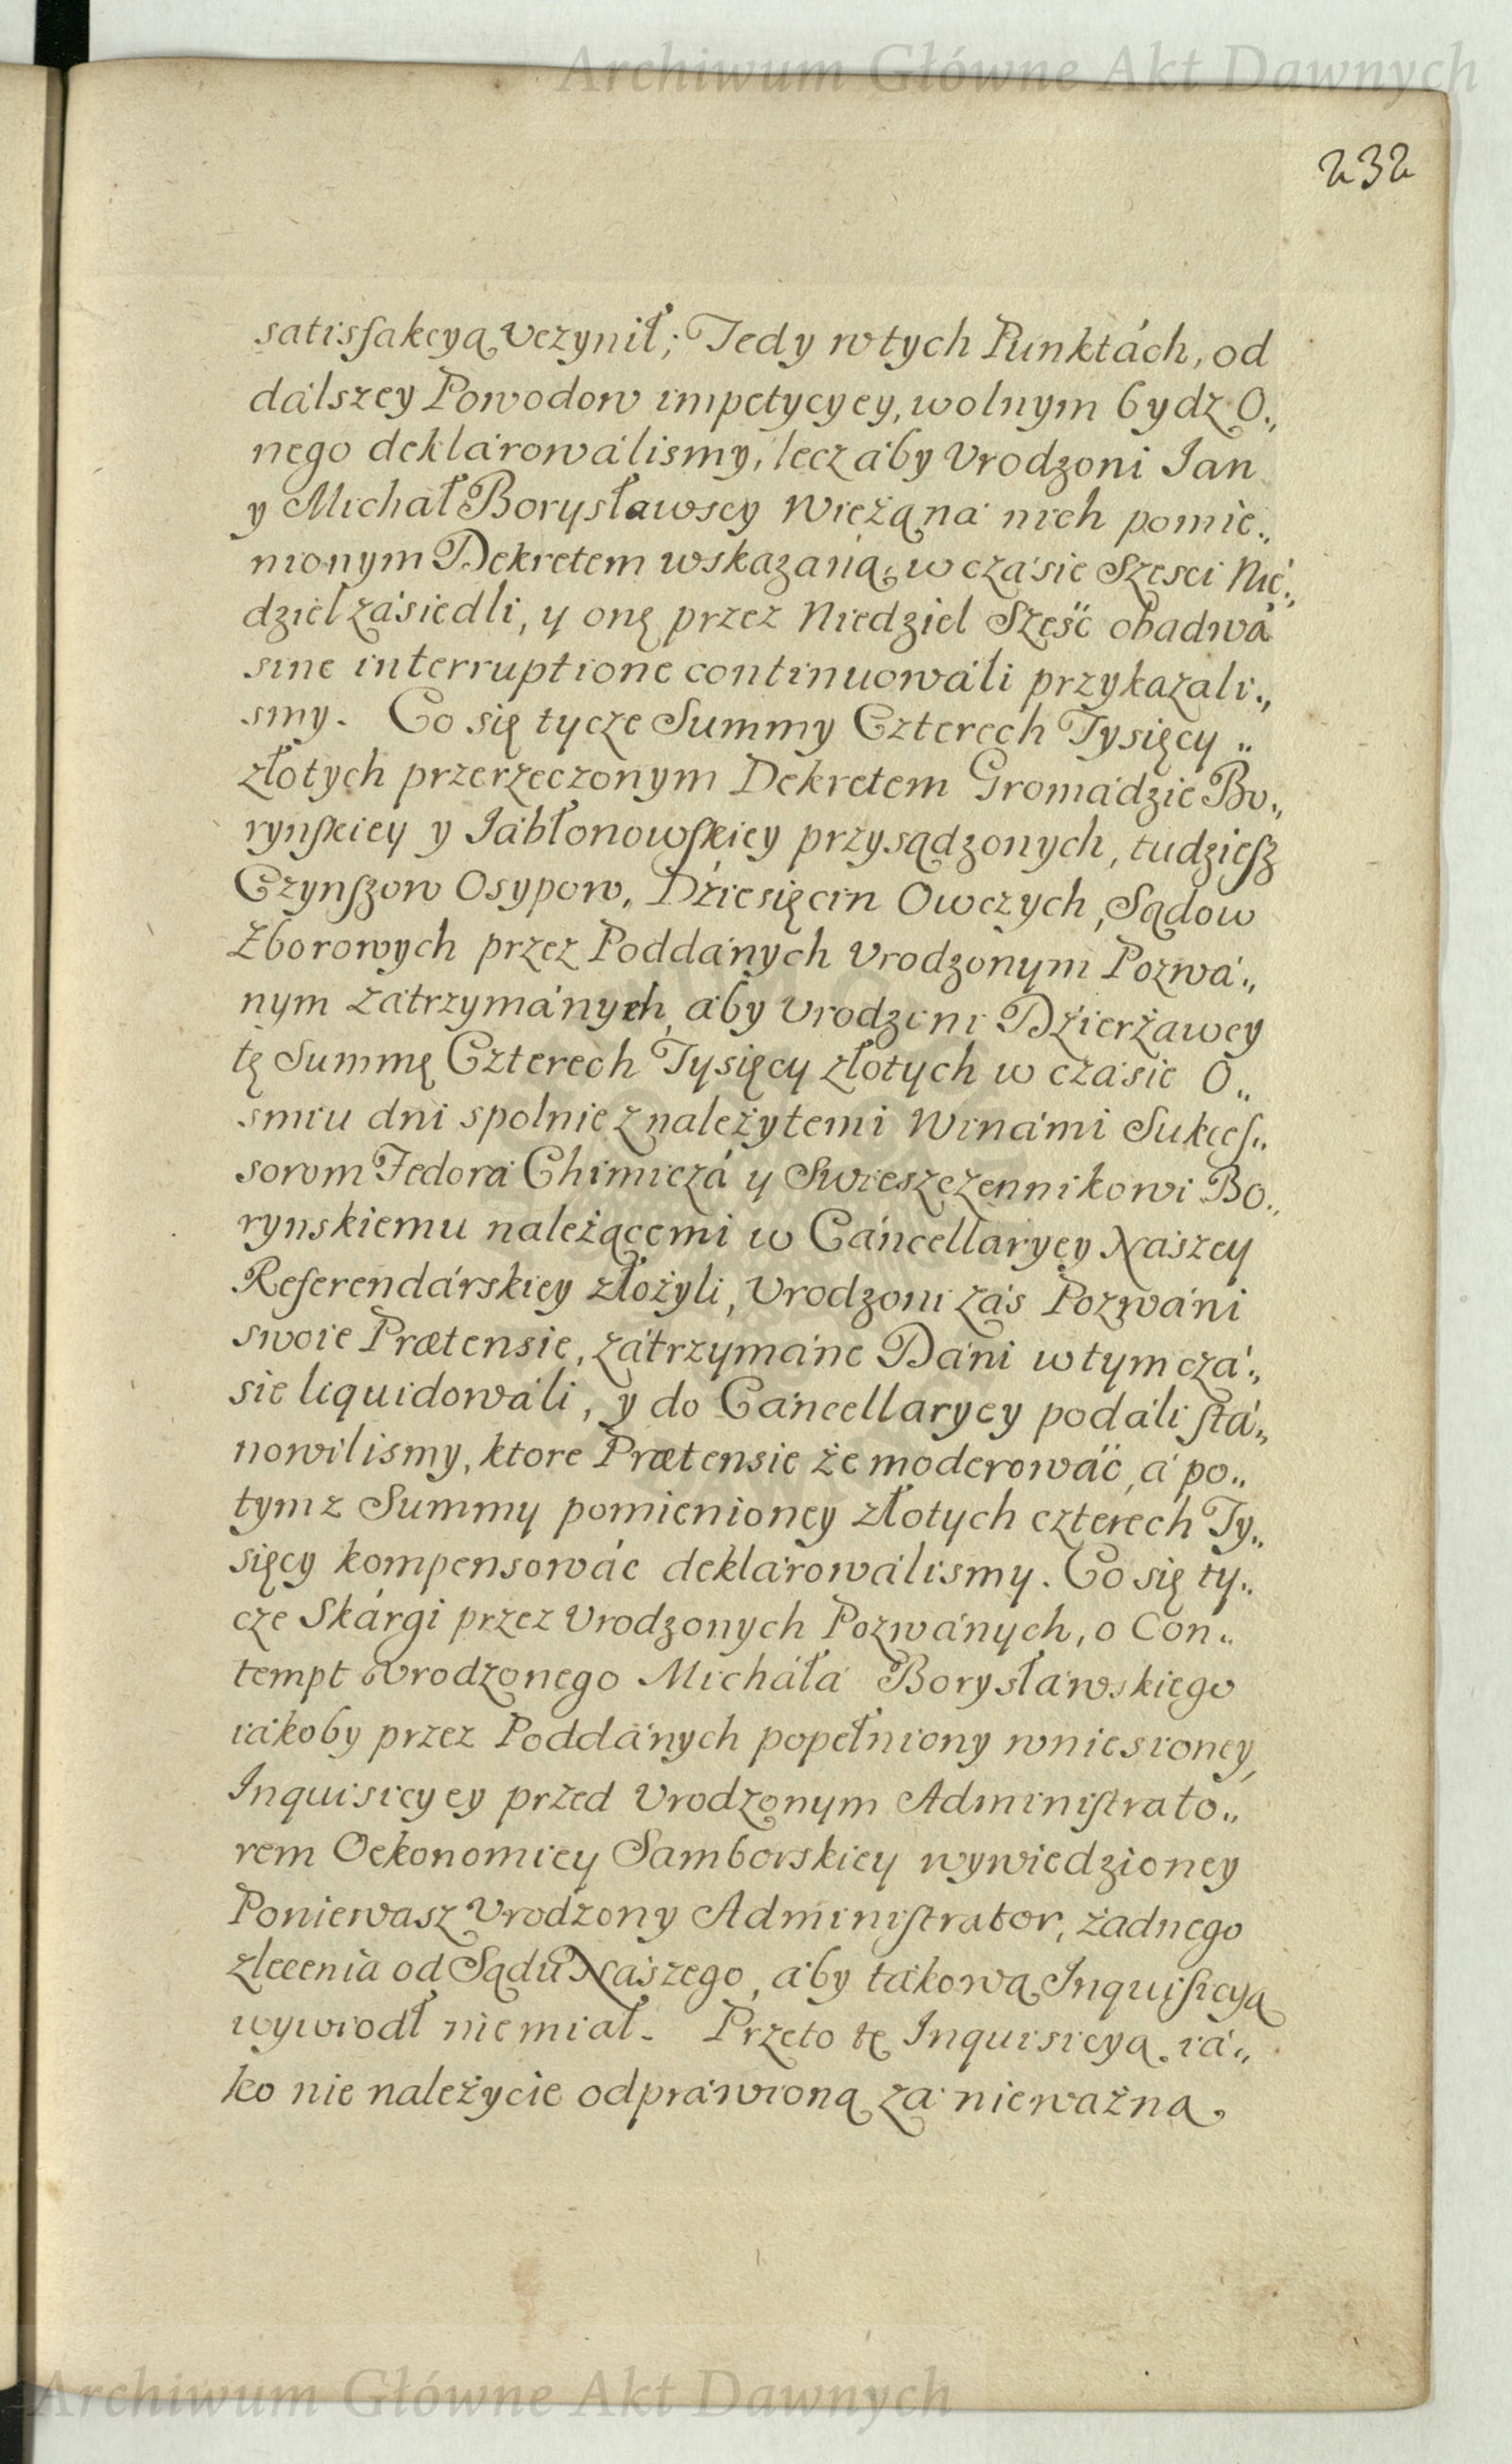 Archiwum Główne Akt Dawnych
232
satisfakcyą Vczynił; Tedy w tych Punktách, od
dálszey Powodow impetycyey, wolnym bydz O„
nego deklárowálismy, lecz áby Vrodzoni Jan
y Michał Borysławscy Wieżą ná nich pomie„
nionym Dekretem wskazáną, w czásie Szesci Nie„
dziel zásiedli, y onę przez Niedziel Sześć obadwá
sine interruptione continuowáli przykazali„
smy. Co się tycze Summy Czterech Tysięcy „
złotych przerzeczonym Dekretem Gromádzie Bo„
rynskiey y Jábłonowskiey przysądzonych, tudziesz
Czynszow Osypow, Dziesięcin Owczych, Sądow
Zborowych przez Poddánych Vrodzonym Pozwá„
nym zátrzymánych, áby Vrodzeni Dzierżawcy
tę Summę Czterech Tysięcy złotych w czásie O„
smiu dni spolnie z należytemi Winámi Sukces„
sorom Fedorá Chimiczá y Swieszczennikowi Bo„
rynskiemu należącemi w Cáncellaryey Nászey
Referendárskiey złożyli, Vrodzoni zás Pozwáni
swoie Prætensie, zátrzymáne Dáni w tym czá„
sie liquidowáli, y do Cáncellaryey podáli stá„
nowilismy, ktore Prætensie że moderowáć, á po„
tym z Summy pomienioney złotych czterech Ty„
sięcy kompensowáć deklárowálismy. Co się ty„
cze Skárgi przez Vrodzonych Pozwánych, o Con„
tempt Vrodzonego Micháłá Borysłáwskiego
iákoby przez Poddánych popełniony wniesioney,
Inquisicyey przed Vrodzonym Administrato„
rem Oekonomiey Samborskiey wywiedzioney
Poniewasz Vrodzony Administrator, żadnego
zleceniá od Sądu Nászego, áby tákową Inquisicyą
wywiodł nie miał. Przeto tę Inquisicyą iá„
ko nie należycie odpráwioną zá nieważną,
Archiwum Główne Akt Dawnych